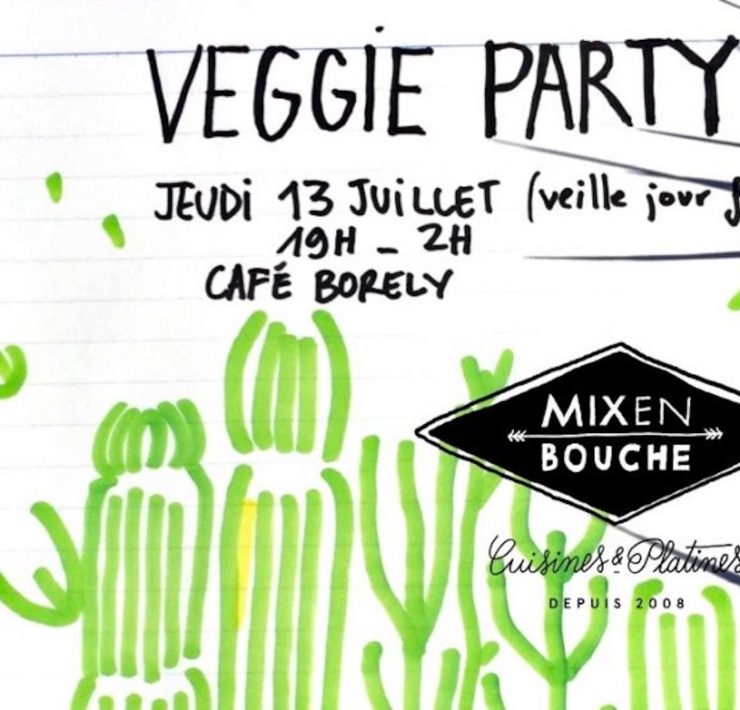 VEGGIE PARTY
JEUDI 13 JUILLET (veille jour
19H - 2H
CAFÉ BORELY
MIXEN
BOUCHE
Cuisines & Platines
DEPUIS 2008